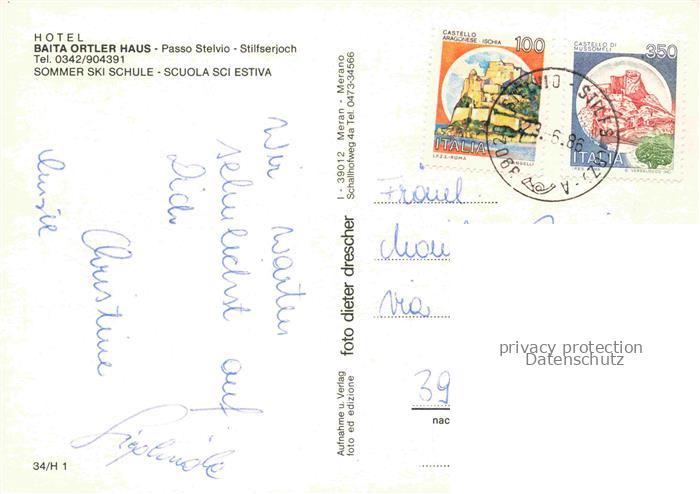 HOTEL
BAITA ORTLER HAUS - Passo Stelvio - Stilfserjoch
Tel. 0342/904391
SOMMER SKI SCHULE - SCUOLA SCI ESTIVA
Wir warten
sehnlichst auf
Dich
Christine
34/H 1
Aufnahme u. Verlag
foto ed edizione
foto dieter drescher
I - 39012 Meran - Merano
Schallhofweg 4a Tel. 0473-34566
CASTELLO
ARAGONESE - ISCHIA
100
ITALIA
I.P.Z.S.-ROMA
CASTELLO DI
MUSSOMELI
350
ITALIA
-6.86
Fräul
via
39
nac
privacy protection
Datenschutz